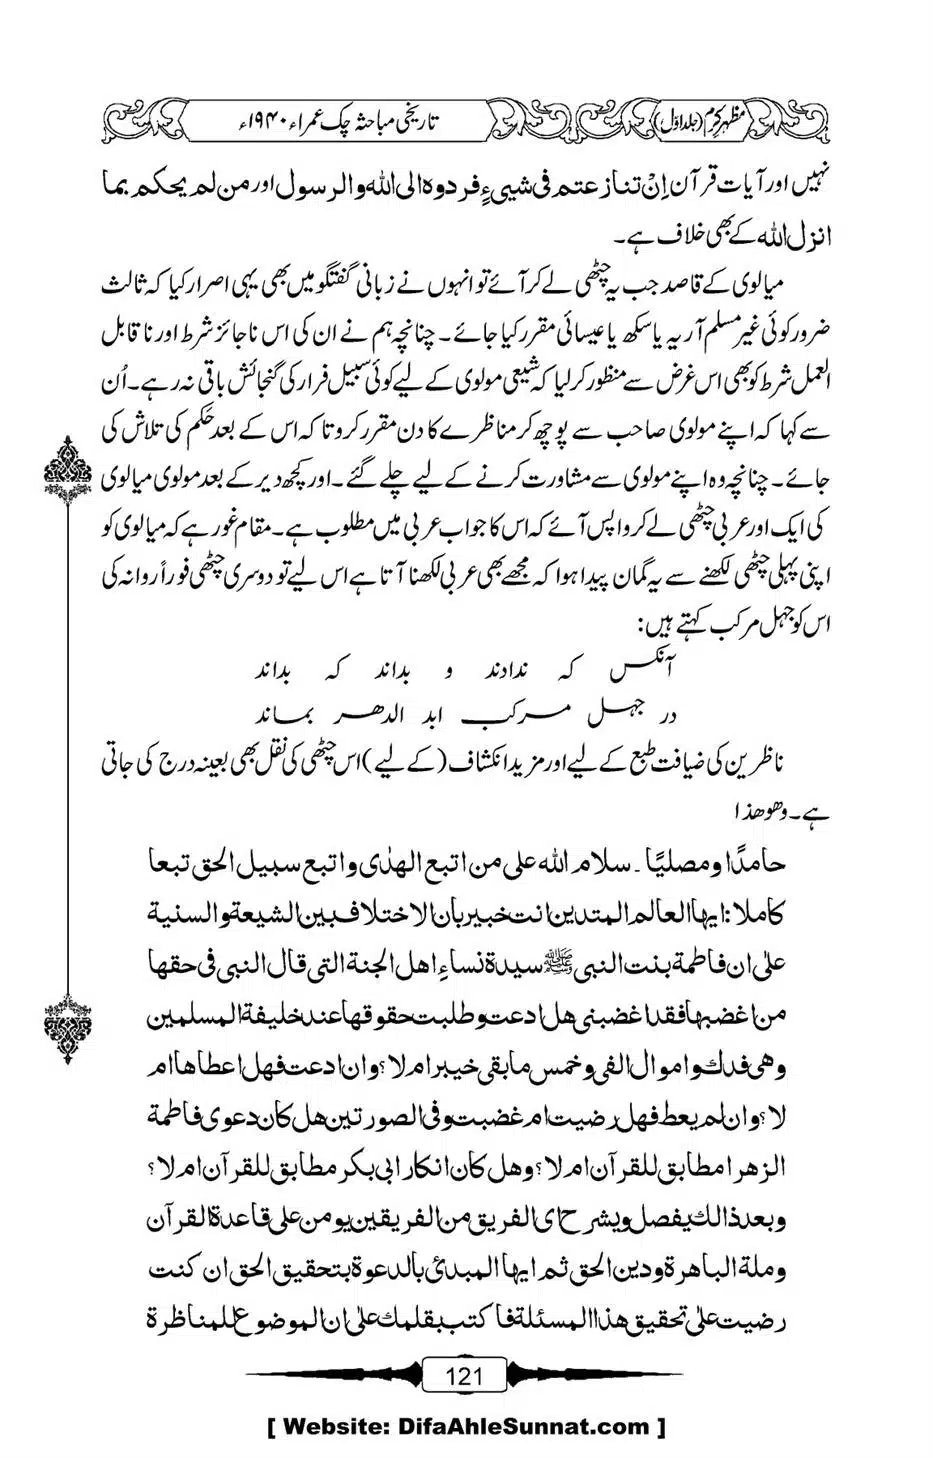 مظہر کرم (جلد اوّل) تاریخی مباحثہ چک عمراء ۱۹۴۰ء
نہیں اور آیات قرآن اِنْ تنازعتم فی شییءٍ فردوہ الی اللہ والرسول اور من لم یحکم بما
انزل اللہ کے بھی خلاف ہے۔
میالوی کے قاصد جب یہ چٹھی لے کر آئے تو انہوں نے زبانی گفتگو میں بھی یہی اصرار کیا کہ ثالث
ضرور کوئی غیر مسلم آریہ یا سکھ یا عیسائی مقرر کیا جائے۔ چنانچہ ہم نے ان کی اس ناجائز شرط اور ناقابل
العمل شرط کو بھی اس غرض سے منظور کر لیا کہ شیعی مولوی کے لیے کوئی سبیل فرار کی گنجائش باقی نہ رہے۔ اُن
سے کہا کہ اپنے مولوی صاحب سے پوچھ کر مناظرے کا دن مقرر کرو تاکہ اس کے بعد حَکم کی تلاش کی
جائے۔ چنانچہ وہ اپنے مولوی سے مشاورت کرنے کے لیے چلے گئے۔ اور کچھ دیر کے بعد مولوی میالوی
کی ایک اور عربی چٹھی لے کر واپس آئے کہ اس کا جواب عربی میں مطلوب ہے۔ مقام غور ہے کہ میالوی کو
اپنی پہلی چٹھی لکھنے سے یہ گمان پیدا ہوا کہ مجھے بھی عربی لکھنا آتا ہے اس لیے تو دوسری چٹھی فوراً روانہ کی
اس کو جہل مرکب کہتے ہیں:
آنکس کہ ندادند و بداند کہ بداند
در جہل مرکب ابد الدھر بماند
ناظرین کی ضیافت طبع کے لیے اور مزید انکشاف (کے لیے) اس چٹھی کی نقل بھی بعینہ درج کی جاتی
ہے۔ وھو ھذا
حامدًا ومصلیًا۔ سلام اللہ علی من اتبع الھدٰی واتبع سبیل الحق تبعا
کاملا: ایھا العالم المتدین انت خبیر بان الاختلاف بین الشیعة والسنیة
علی ان فاطمة بنت النبی ﷺ سیدة نساءِ اھل الجنة التی قال النبی فی حقھا
من اغضبھا فقد اغضبنی ھل ادعت وطلبت حقوقھا عند خلیفة المسلمین
وھی فدك واموال الفی وخمس ما بقی خیبر ام لا؟ وان ادعت فھل اعطاھا ام
لا؟ وان لم یعط فھل رضیت ام غضبت وفی الصورتین ھل کان دعوی فاطمة
الزھرا مطابق للقرآن ام لا؟ وھل کان انکار ابی بکر مطابق للقرآن ام لا؟
وبعد ذالك یفصل ویشرح ای الفریق من الفریقین یومن علی قاعدة القرآن
وملة الباھرة ودین الحق ثم ایھا المبدیٔ بالدعوة بتحقیق الحق ان کنت
رضیت علی تحقیق ھذا المسئلة فاکتب بقلمك علی ان الموضوع للمناظرة
121
[ Website: DifaAhleSunnat.com ]